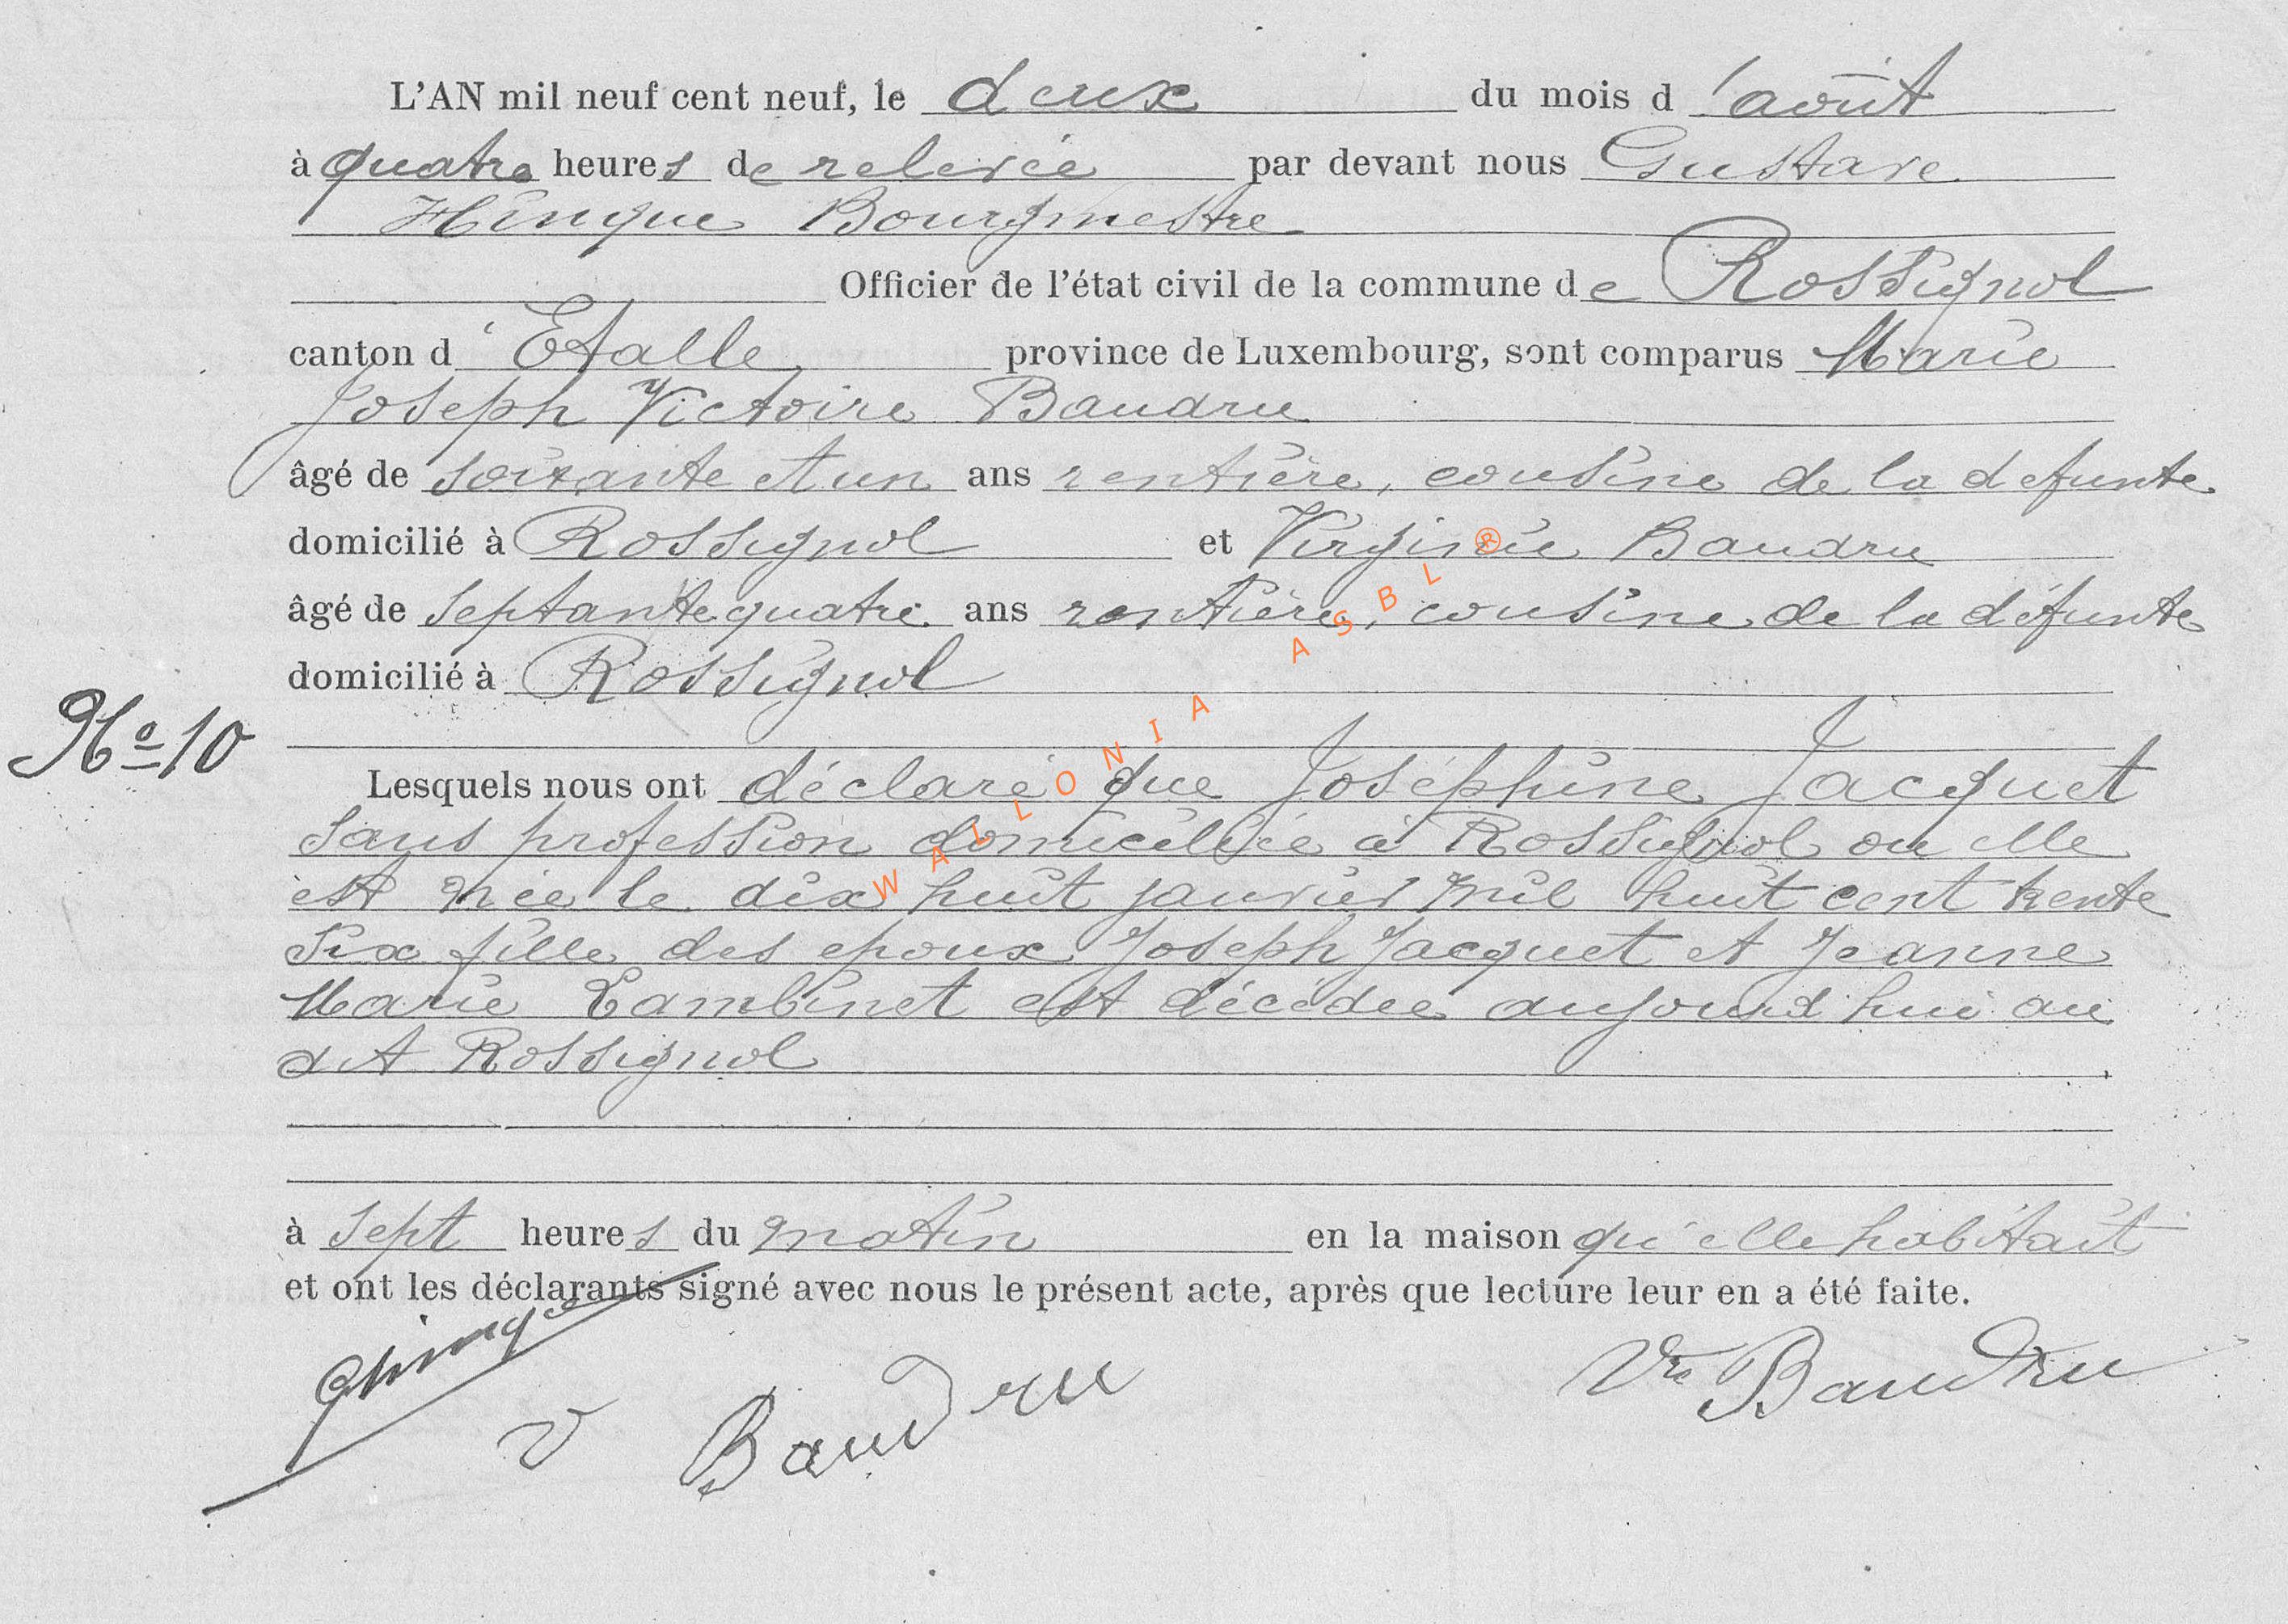 L'AN mil neuf cent neuf, le deux du mois d'août
à quatre heures de relevée par devant nous Gustave
Hinque Bourgmestre
Officier de l'état civil de la commune de Rossignol
canton d'Etalle province de Luxembourg, sont comparus Marie
Joseph Victoire Baudru
âgé de soixante et un ans rentière, cousine de la defunte
domicilié à Rossignol et Virginie Baudru
âgé de septante quatre ans rentière, cousine de la défunte
domicilié à Rossignol
No 10
Lesquels nous ont déclaré que Joséphine Jacquet
sans profession domiciliée à Rossignol ou elle
est née le dix huit janvier mil huit cent trente
six fille des epoux Joseph Jacquet et Jeanne
Marie Lambinet est décédée aujourd'hui au
dit Rossignol
à sept heures du matin en la maison qu'elle habitait
et ont les déclarants signé avec nous le présent acte, après que lecture leur en a été faite.
GHinque
V Baudru
Vre Baudru
WALLONIA ASBL ®